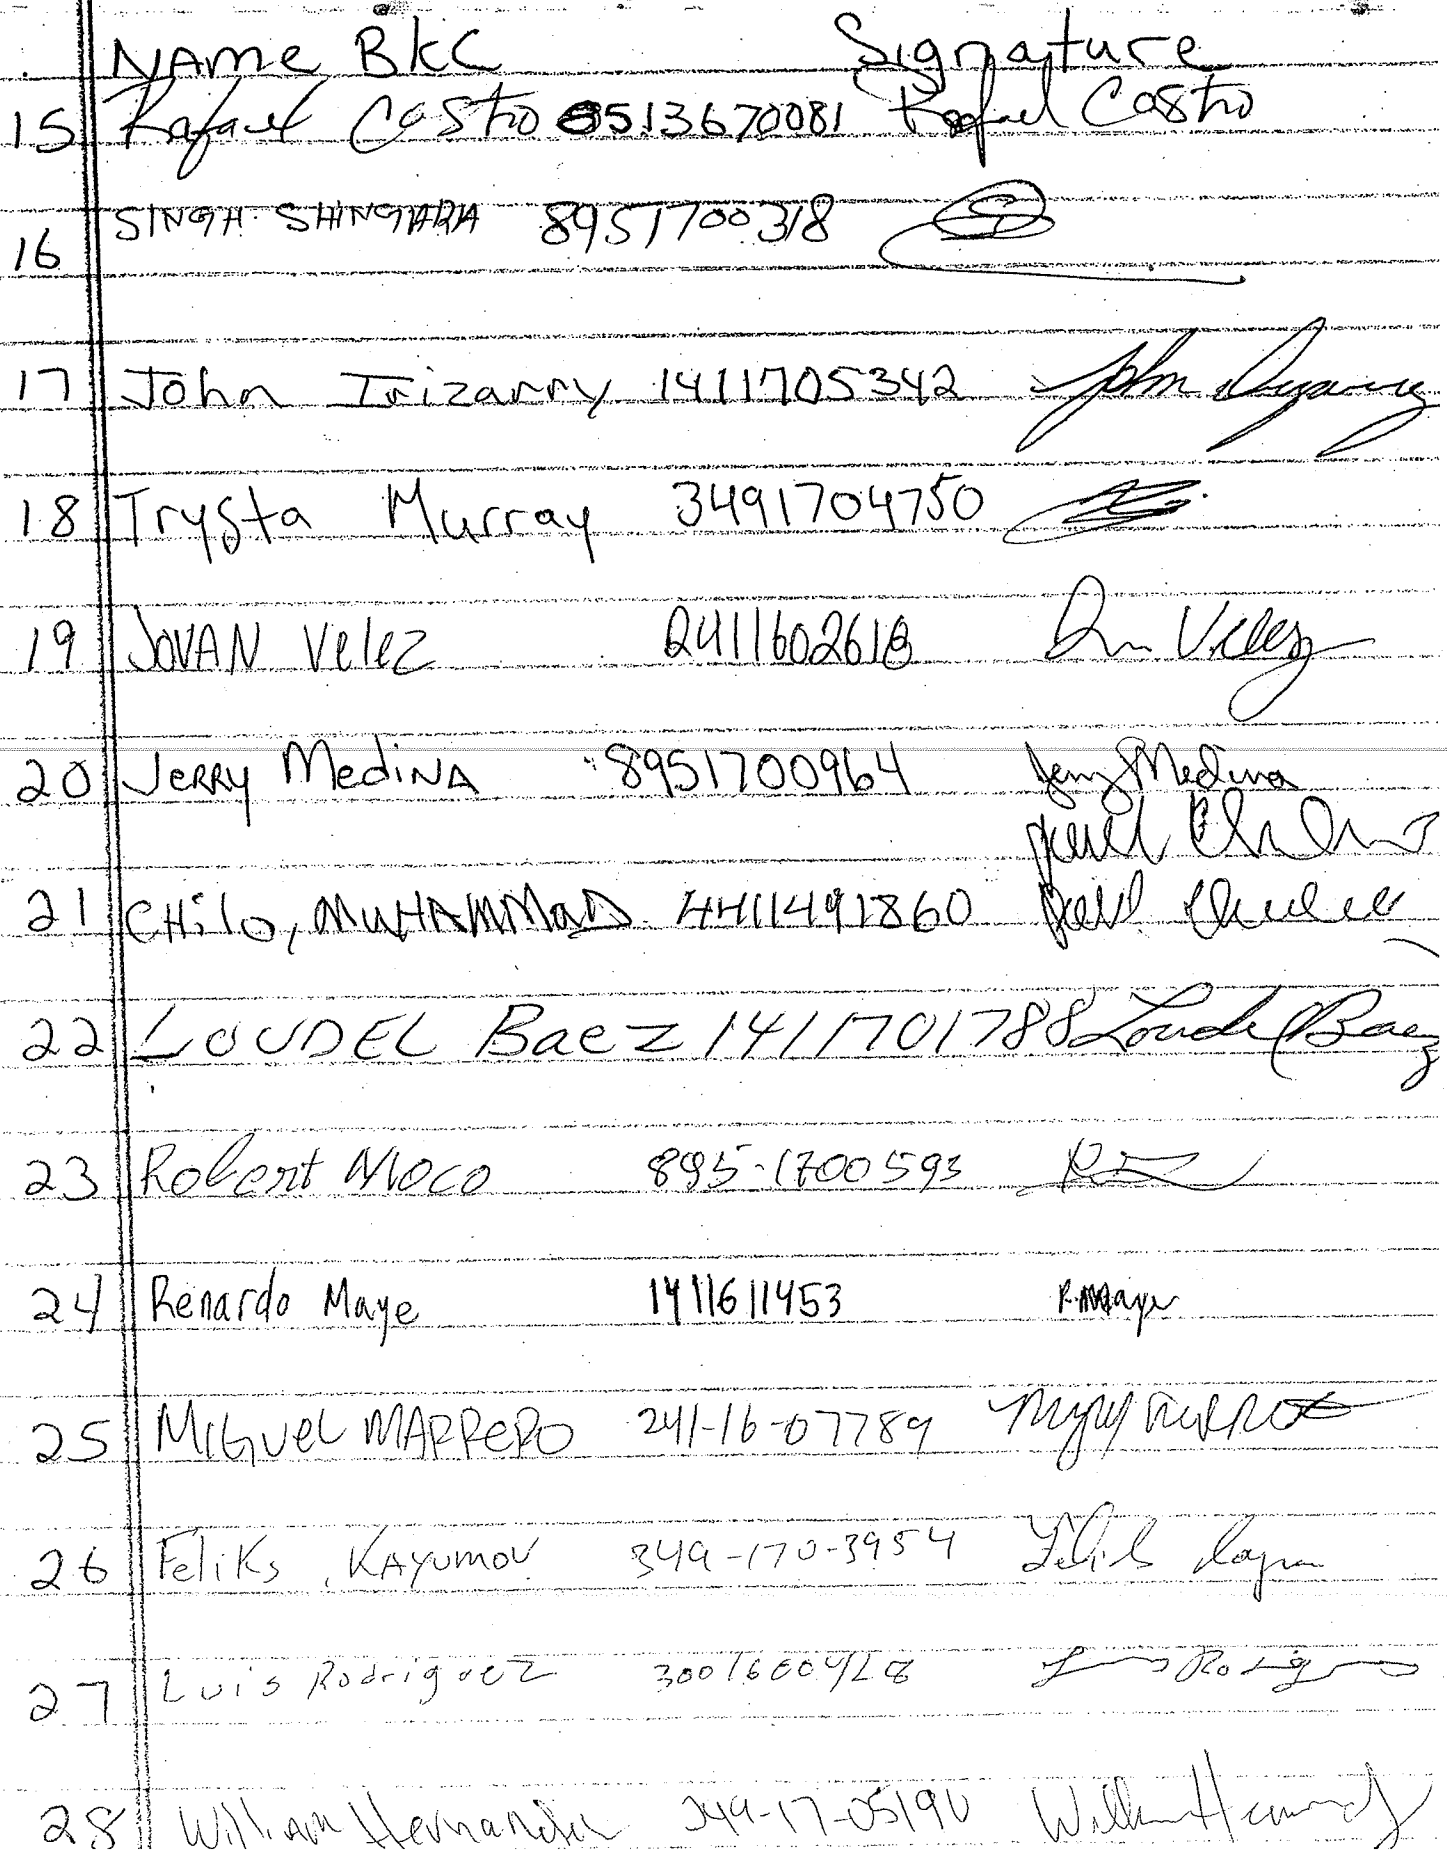 NAME BKC Signature
15 Rafael Castro 8513670081 Rafael Castro
16 SINGH. SHINGARA 8951700318
17 John Irizarry 1411705342 John Irizarry
18 Trysta Murray 3491704750
19 JOVAN Velez 2411602618 Velez
20 JERRY MediNA 8951700964 Jerry Medina
21 CHilo, MUHAMMAD 4411491860
22 LOUDEL Baez 1411701788 Loudel Baez
23 Robert Moco 895-1700593
24 Renardo Maye 1411611453 R. Maye
25 MIGUEL MARRERO 241-16-07789
26 Feliks KAYUMOV 349-170-3954
27 Luis Rodriguez Luis Rodriguez
28 William Hernandez 349-17-05190 William